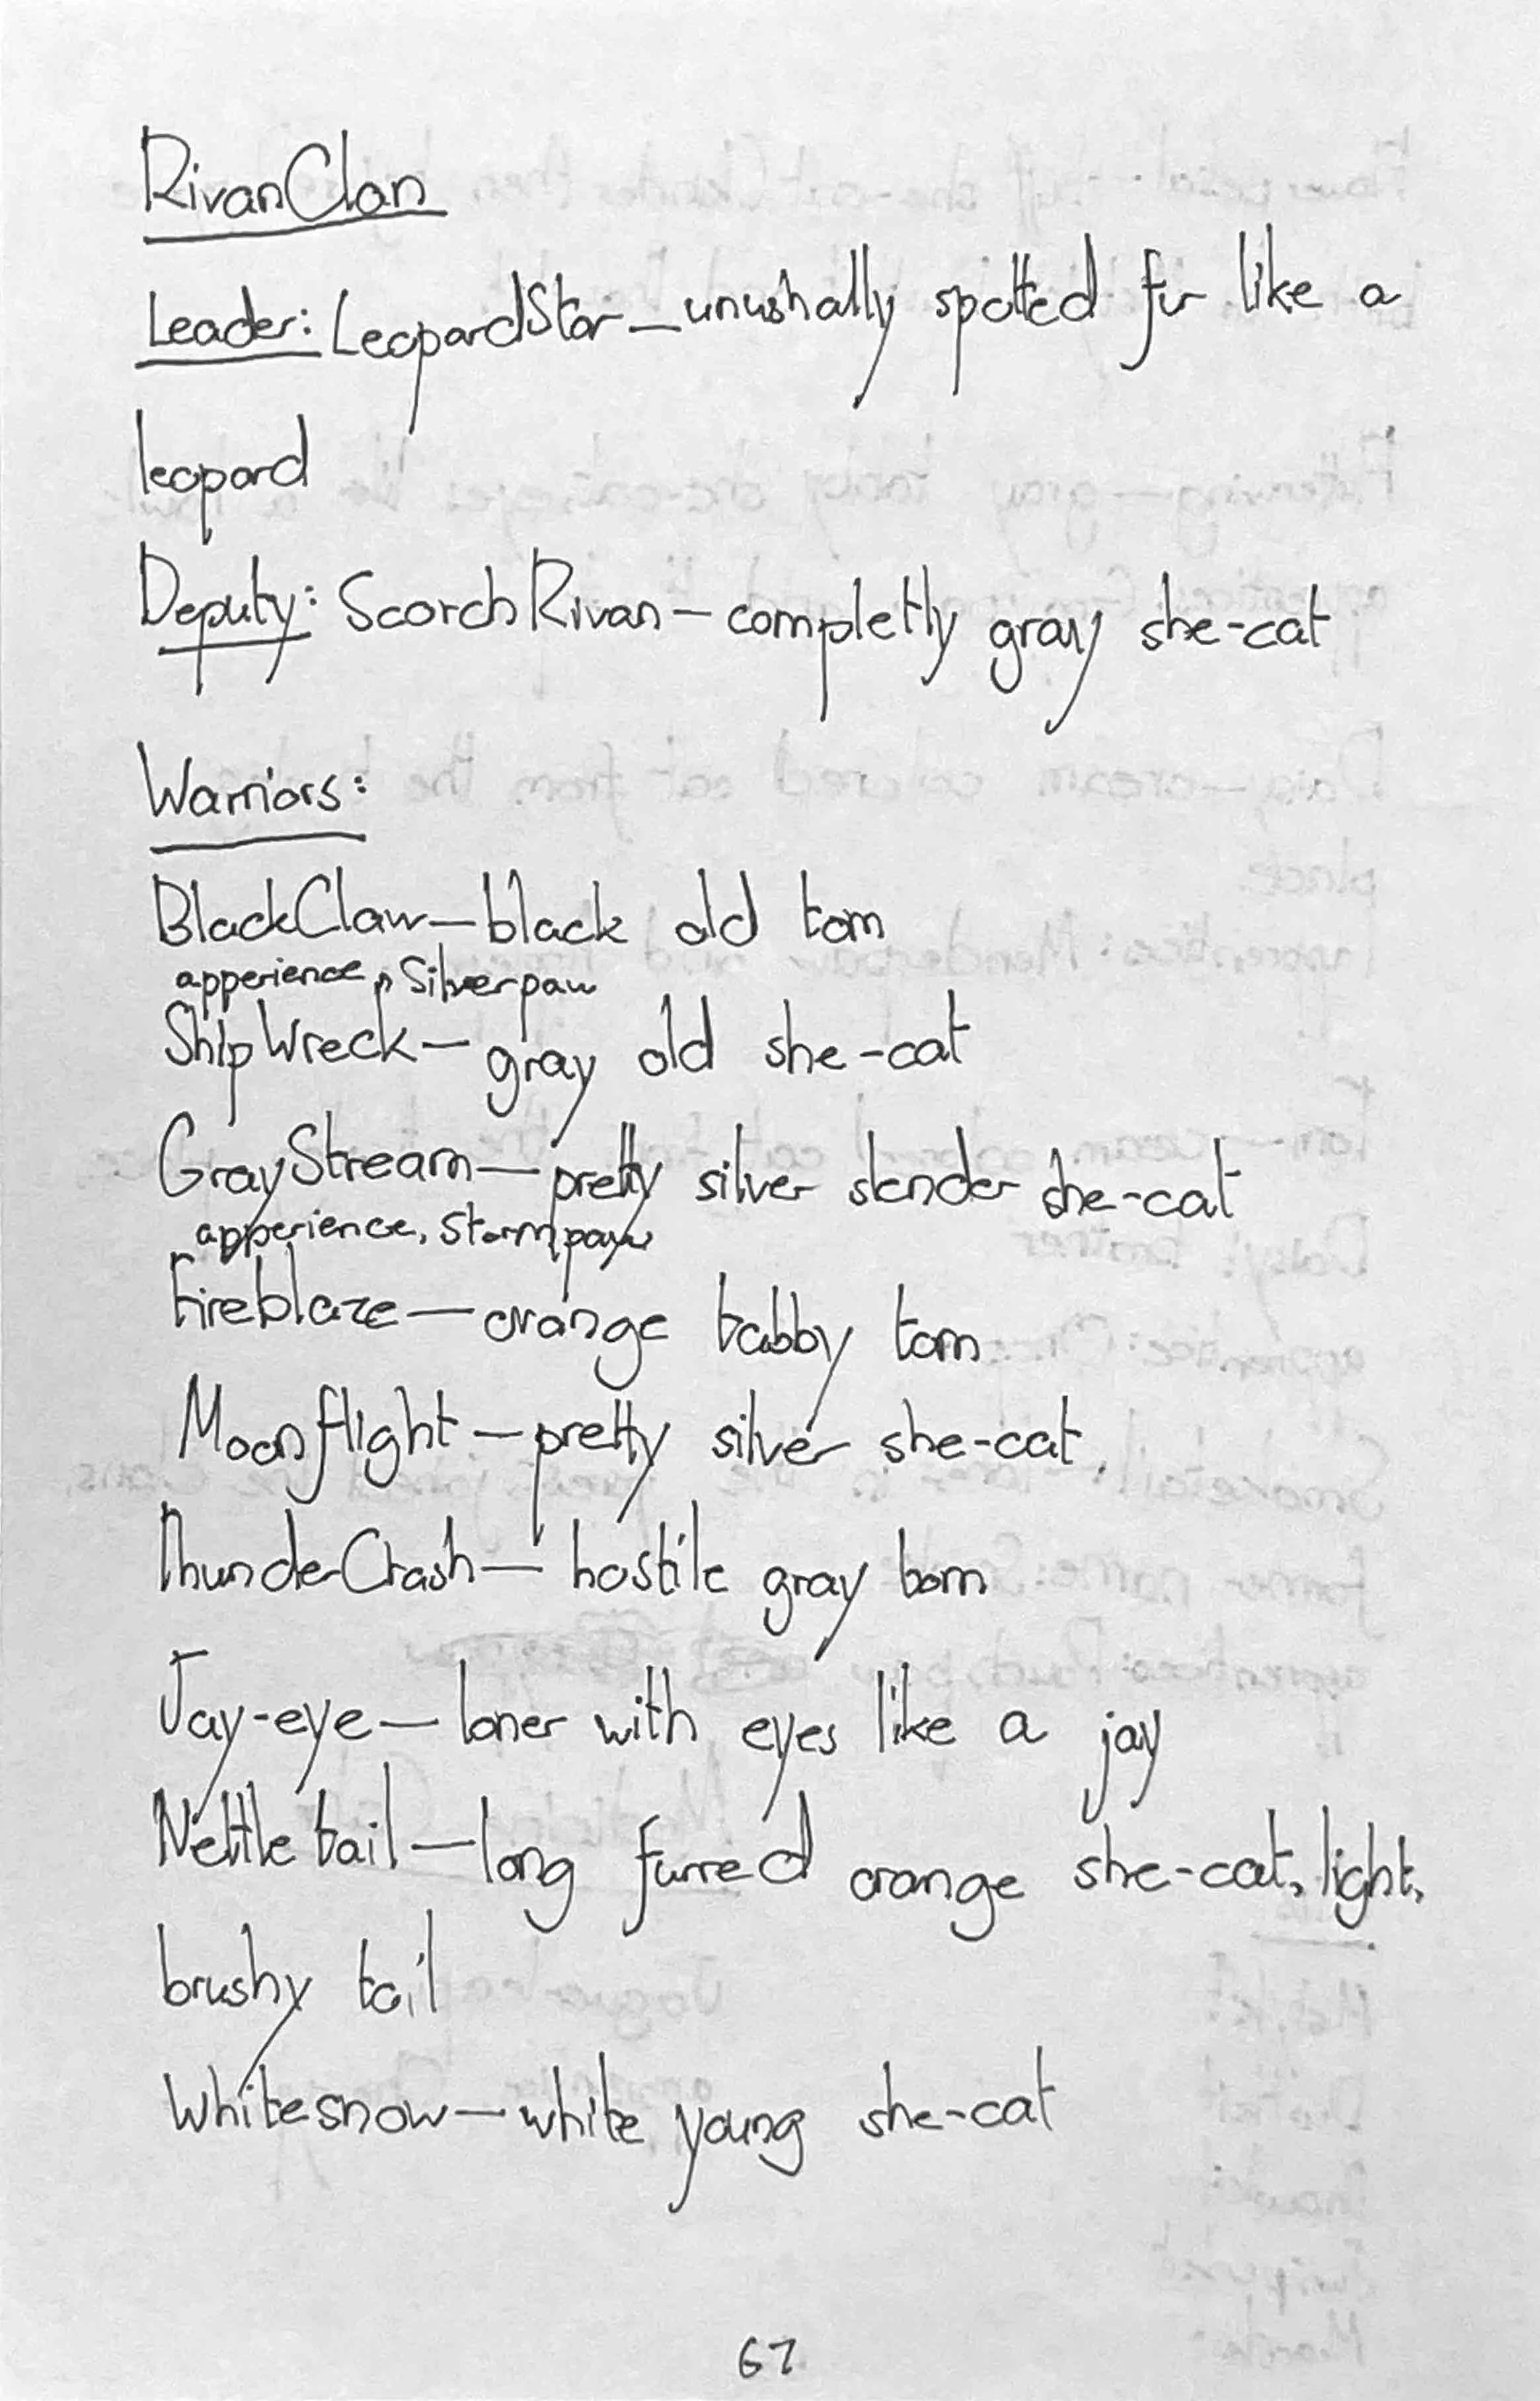 RivanClan
Leader: LeopardStar—unushally spotted fur like a
leopard
Deputy: ScorchRivan—completly gray she-cat
Warriors:
BlackClaw—black old tom
apperience, Silverpaw
ShipWreck—gray old she-cat
GrayStream—pretty silver slender she-cat
apperience, Stormpaw
Fireblaze—orange tabby tom
Moonflight—pretty silver she-cat.
ThunderCrash—hostile gray tom
Jay-eye—loner with eyes like a jay
Nettletail—long furred orange she-cat, light,
brushy tail
Whitesnow—white young she-cat
67